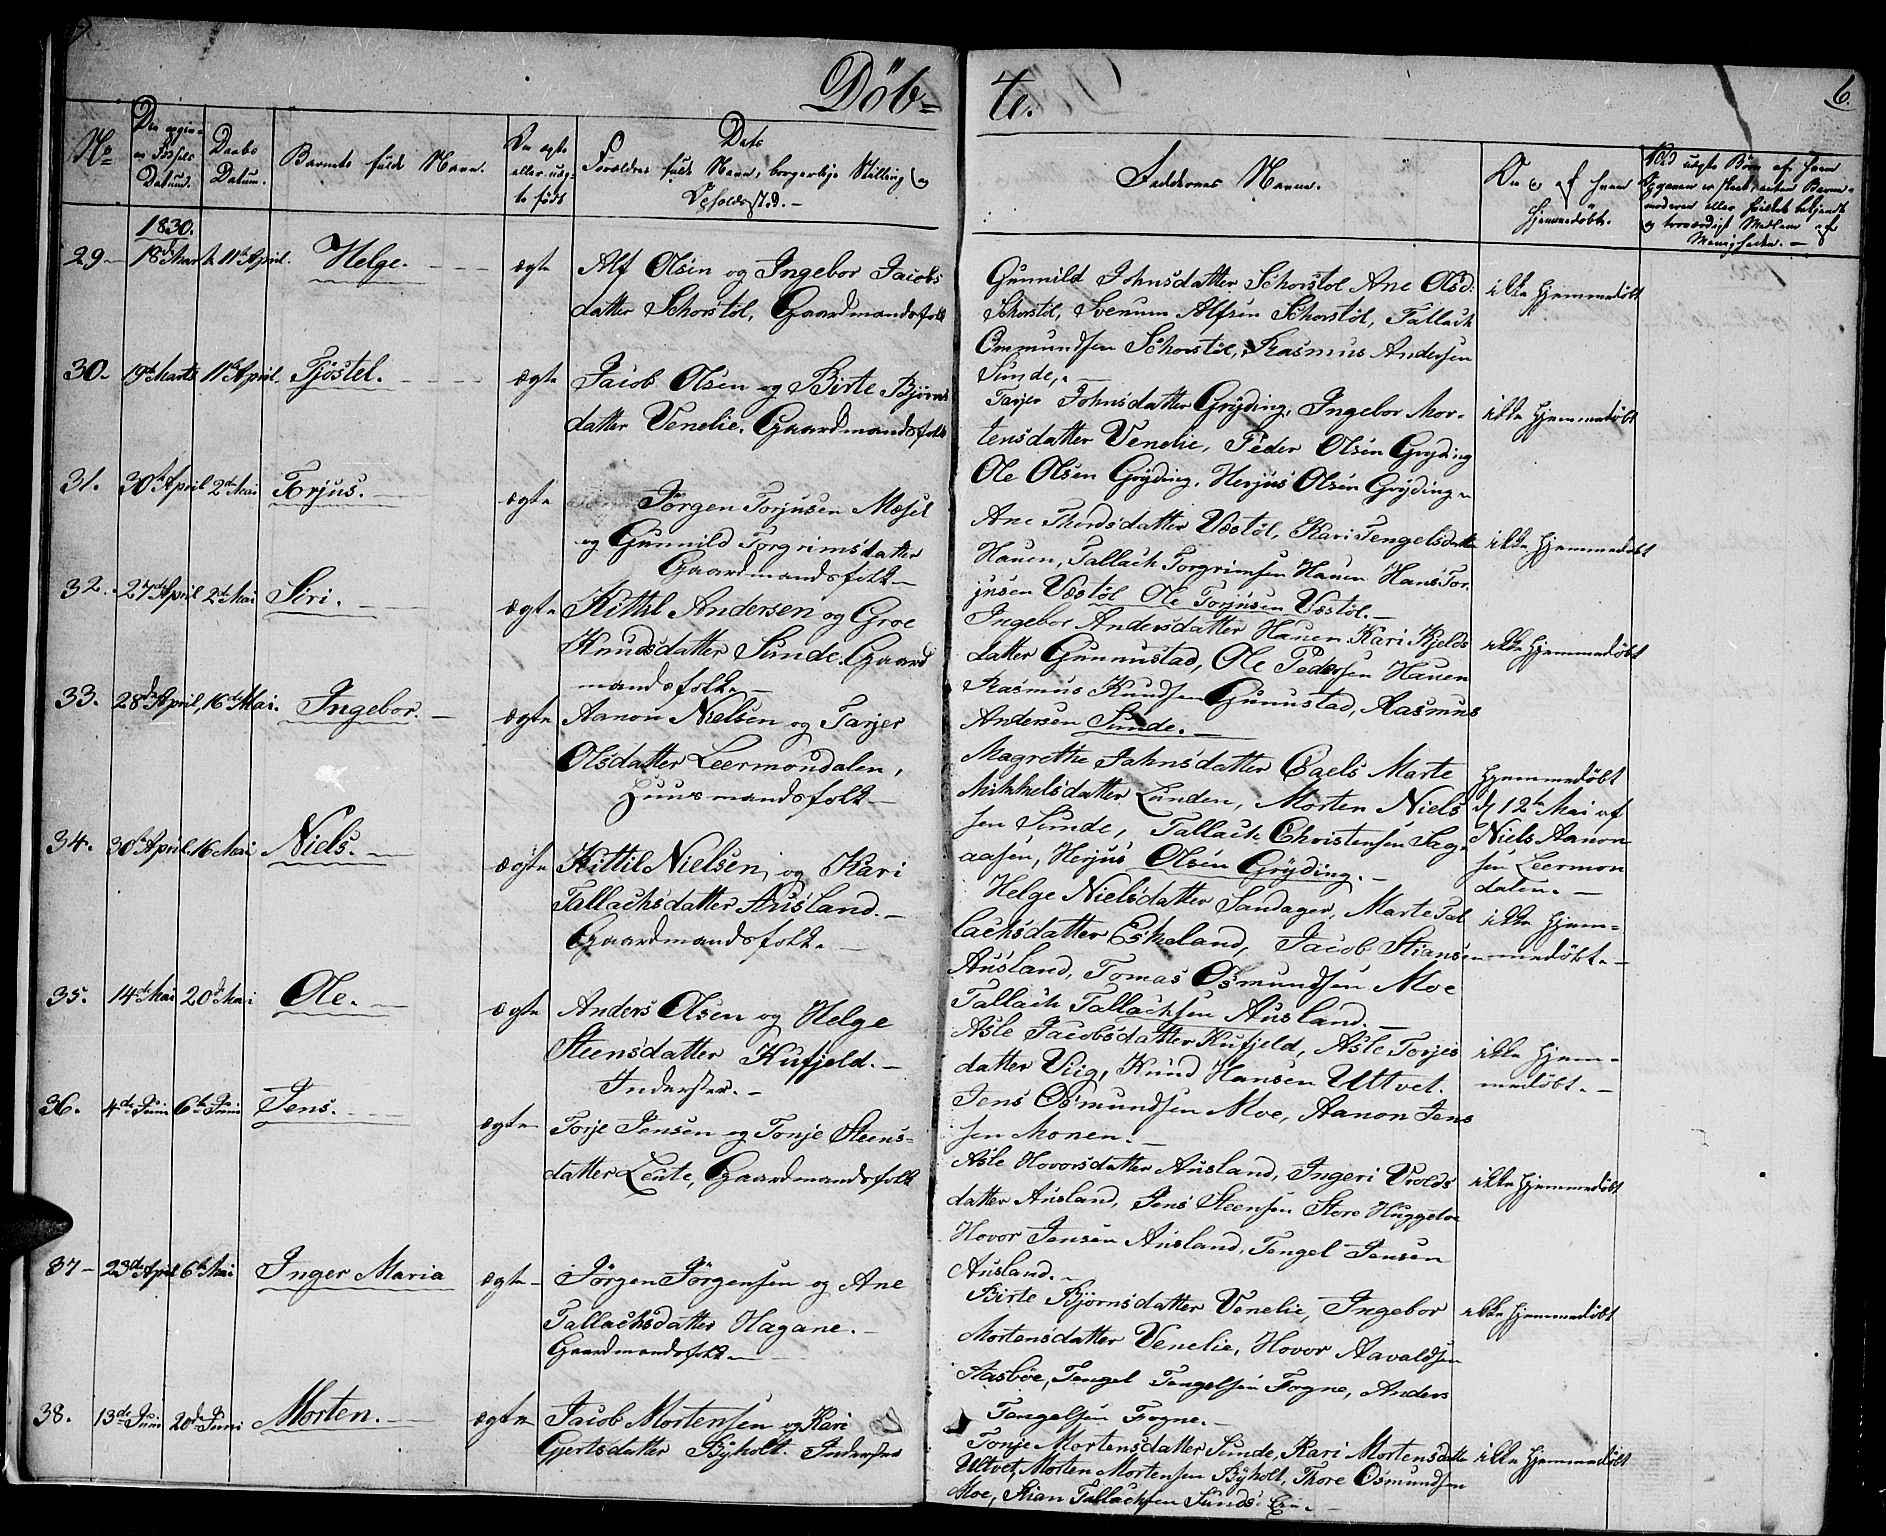 Döb=
te.
6.
No
Den angivne Fødsels Datum.
Daabs Datum.
Barnets fulde Navn.
Om ægte eller uægte født
Dets Forældres fulde Navn, borgerlige Stilling og Opholdssted.
Faddernes Navne.
Om og af hvem hjemmedøbt.
1830.
29- 18de Marts 11te April. Helge. ægte
Alf Olsen og Ingebor Jacobs
datter Schorstöl, Gaardmandsfolk
Gunnild Johnsdatter Schorstöl Ane Olsd:
Schorstöl, Svenum Alfsen Schorstöl, Tallach
Omundsen Schorstöl, Rasmus Andersen
Sunde,
ikke hjemmedøbt
30. 19de Marts 11te April. Tjöstel. ægte
Jacob Olsen og Birte Bjørns
datter Venelie, Gaardmandsfolk
Tarjer Johnsdatter Gryding, Ingebor Mor-
tensdatter Venelie, Peder Olsen Gryding
Ole Olsen Gryding, Herjus Olsen Gryding
ikke hjemmedøbt
31. 30te April 2den Mai Terjus. ægte
Jörgen Torjusen Mæsel
og Gunnild Torgrimsdatter
Gaardmandsfolk
Ane Thordsdatter Væstöl, Kari Tengelsdatter
Hauen, Tallach Torgrimsen Hauen Hans Tor-
jusen Væstöl Ole Torjusen Væstöl.
ikke hjemmedøbt
32. 27de April 2den Mai Siri. ægte
Kittil Andersen og Groe
Knudsdatter Sunde. Gaard
mandsfolk.
Ingebor Andersdatter Hauen Kari Kjelds
datter Gunnustad, Ole Pedersen Hauen
Rasmus Knudsen Gunnustad, Aasmus
Andersen Sunde.
ikke hjemmedøbt
33. 28de April, 16de Mai. Ingebor. ægte
Aanon Nielsen og Tarjer
Olsdatter Leermondalen,
Huusmandsfolk
Magrethe Jahnsdatter Egels Marte
Mikkelsdatter Lunden, Morten Niels
sen Sunde, Tallach Christensen Sag-
aasen, Herjus Olsen Gryding.
hjemmedøbt
d 12te Mai af
Niels Aanon
sen Leermon
dalen.
34. 30te April 16 Mai Niels. ægte
Kittil Nielsen, og Kari
Tallachsdatter Ausland.
Gaardmandsfolk.
Helge Nielsdatter Sandager, Marte Tal
lachsdatter Eskeland, Jacob Stiansen
Ausland, Tomas Osmundsen Moe
Tallach Tallachsen Ausland.
ikke hjem-
medøbt.
35. 14de Mai 20de Mai Ole. ægte
Anders Olsen og Helge
Steensdatter Kufjeld.
Inderster.
Asle Jacobsdatter Kufjeld, Asle Torjes
datter Viig, Knud Hansen Uttvet.
Jens Osmundsen Moe, Aanon Jens
sen Monen.
ikke hjem-
medøbt.
36. 4de Juni 6te Juni Jens. ægte
Torje Jensen og Tonje Steens-
datter Leute, Gaardmandsfolk
Asle Hovorsdatter Ausland, Ingeri Vrolds
datter Ausland, Jens Steensen Store Huggelve
Hovor Jensen Ausland, Tengel Jensen
Ausland.
ikke hjemmedøbt
37- 23de April 6te Mai Inger Maria ægte
Jörgen Jörgensen og Ane
Tallachsdatter Hagane.
Gaardmandsfolk
Birte Bjørnsdatter Venelie, Ingebor
Mortensdatter Venelie, Hovor Aavaldsen
Aasböe, Tengel Tengelsen Fogne, Anders
Tengelsen Fogne.
ikke hjemmedøbt
38. 13de Juni 20de Juni Morten. ægte
Jacob Mortensen og Kari
Gjertsdatter Byholt. Inderster
Tonje Mortensdatter Sunde, Kari Mortensdatter
Uttvet, Morten Mortensen Byholt, Thore Osmundsen
Moe, Stian Tallachsen Sunds-
ikke hjemmedøbt